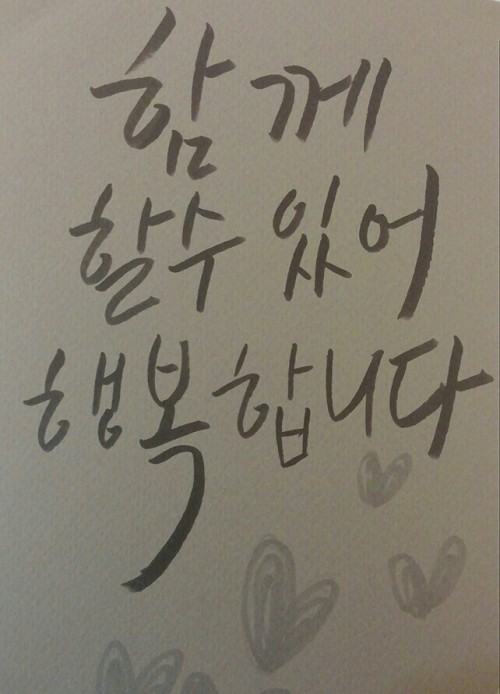 함께
할수 있어
행복합니다